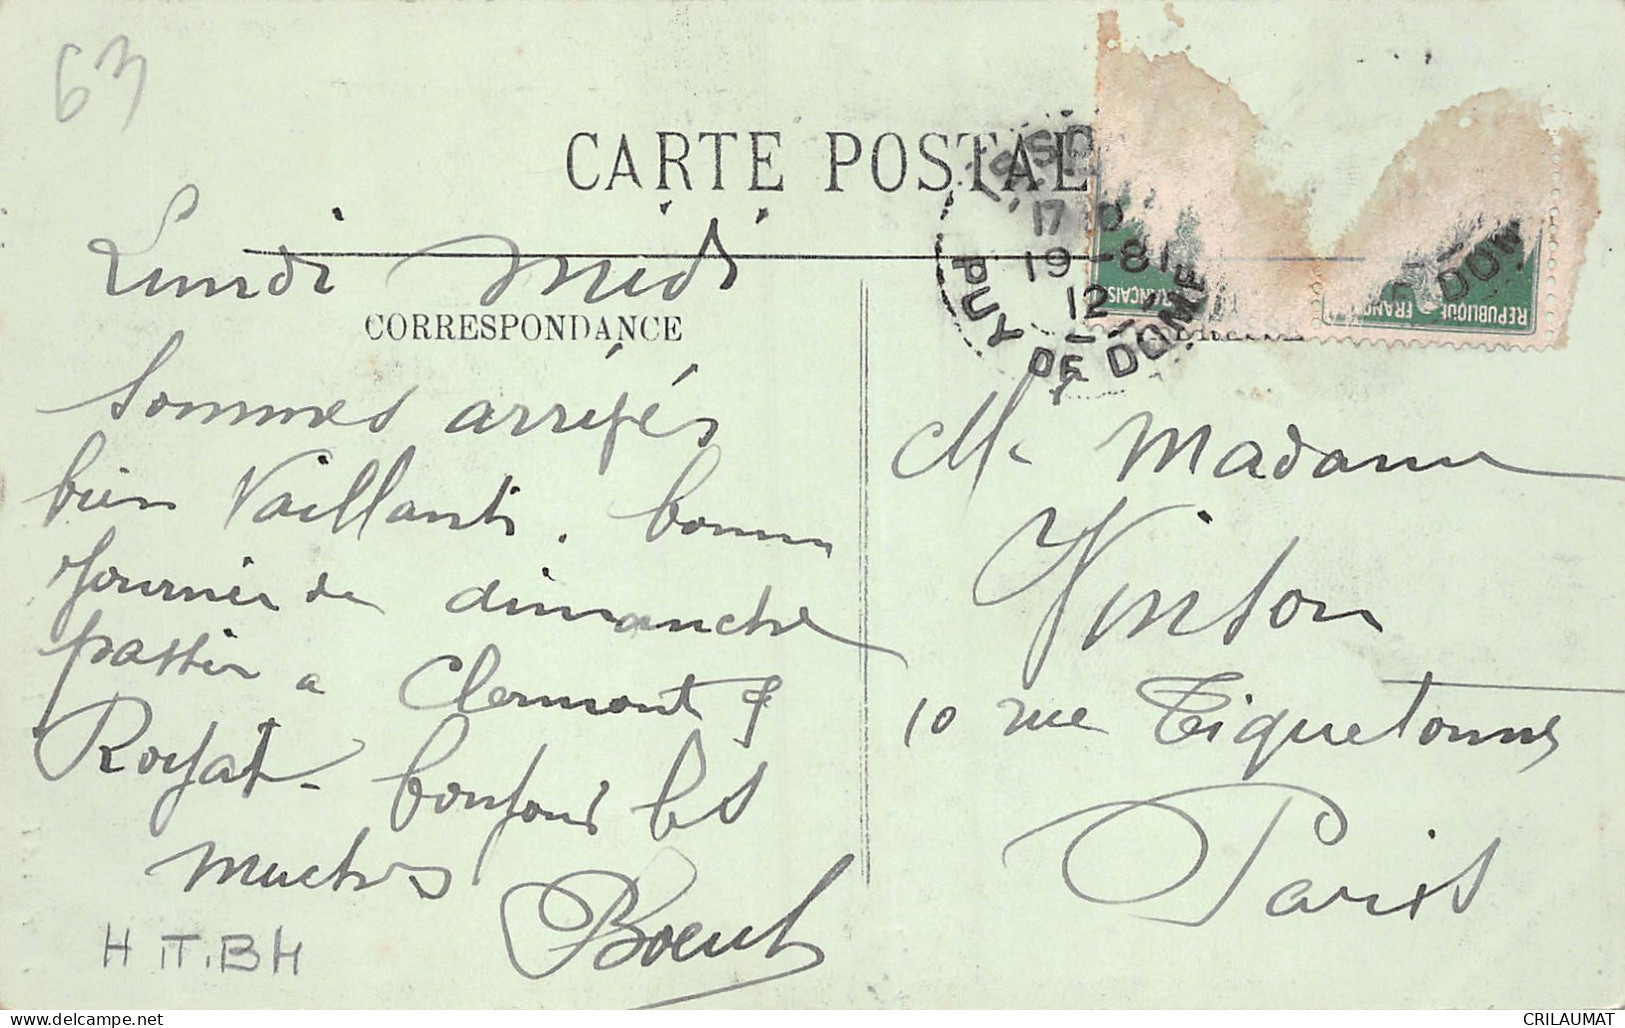 63
CARTE POSTALE
Lundi midi
CORRESPONDANCE
Sommes arrivés
bien Vaillants. bonne
journée de dimanche
passée a Clermont &
Royat - bonjour les
muches
H TT.BH
17
19 -8
12
PUY DE DOME
FRANÇAISE
REPUBLIQUE FRANÇA
DOM
Madame
Vinson
10 rue Tiquetonne
Paris
CRILAUMAT